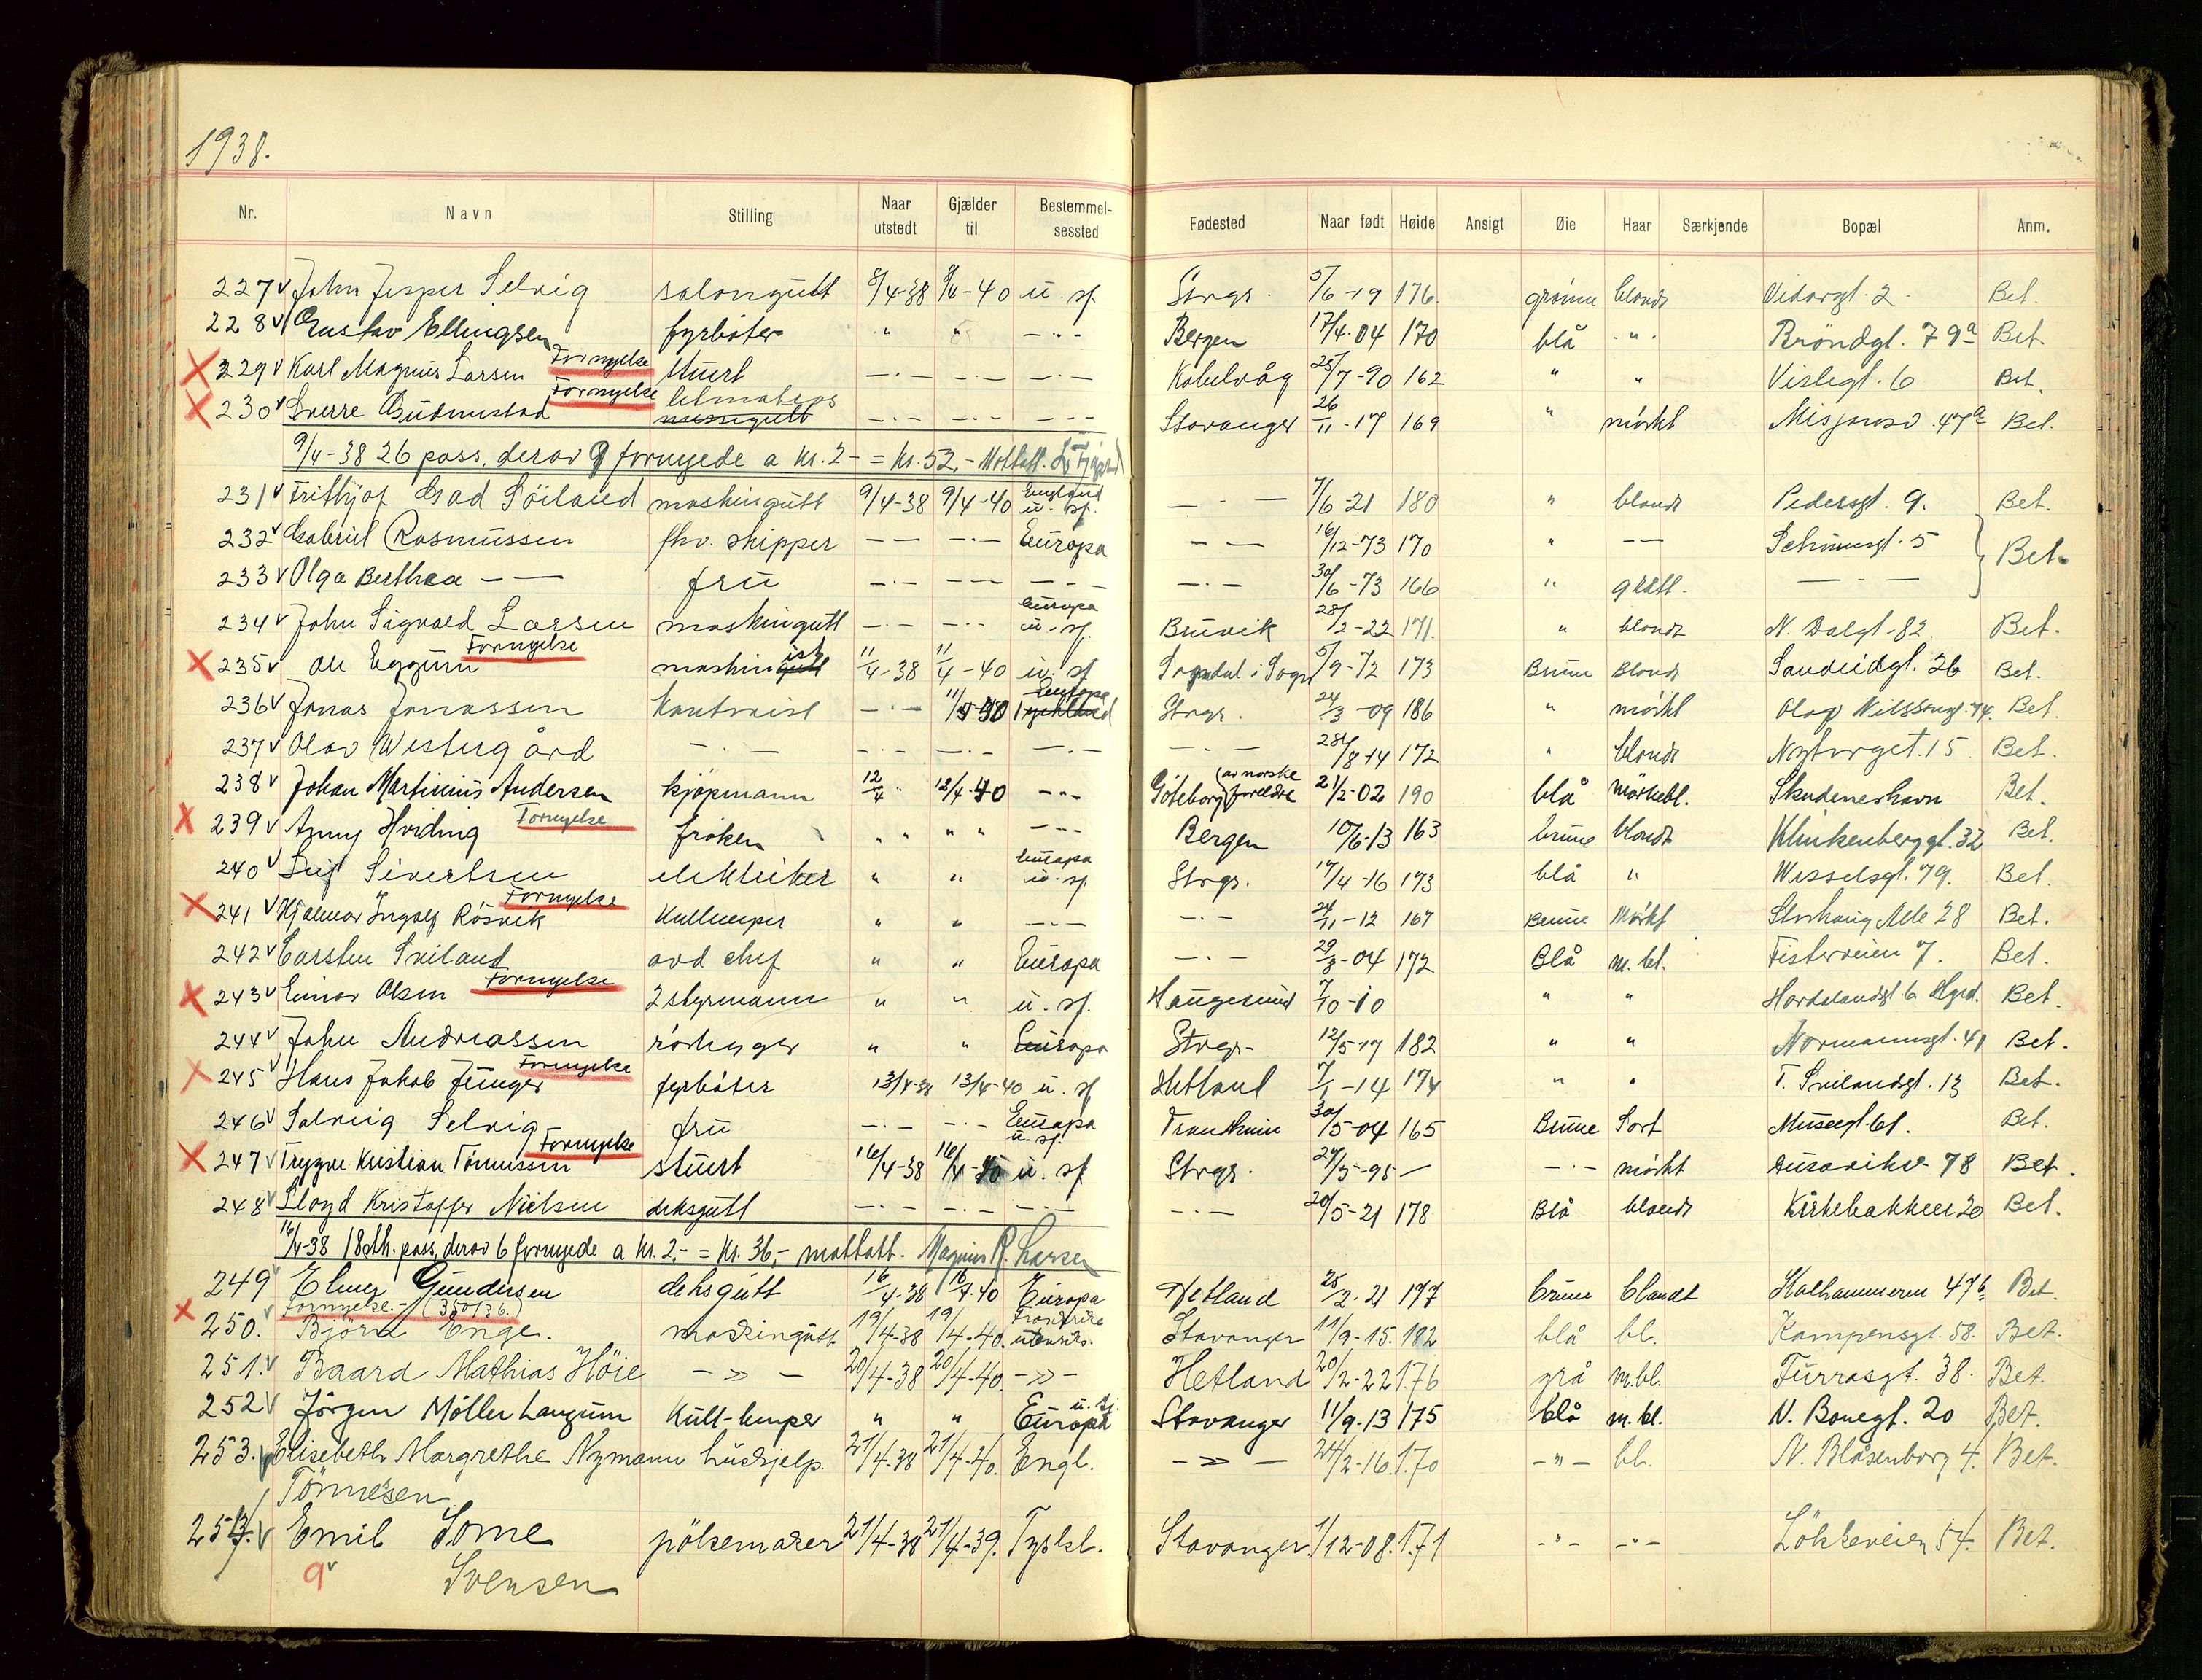 1938.
Nr. Navn Stilling Naar utstedt Gjælder til Bestemmelsessted Fødested Naar født Høide Ansigt Øie Haar Særkjende Bopæl Anm.
227 v John Jesper Selvig salongutt 8/4-38 8/4-40 u. sj. Stvgr. 5/6-19 176. grønne blondt Vidargt. 2. Bet.
228 v Gustav Ellingsen fyrbøter " " — " — Bergen 17/4-04 170 blå " Brøndgt. 79a Bet.
X 229 v Karl Magnus Larsen Fornyelse stuert — " — — " — — " — Kabelvåg 25/7-90 162 " " Vislegt. 6 Bet.
X 230 v Sverre Gudmestad Fornyelse letmatros messegutt — " — — " — — " — Stavanger 26/11-17 169 " mørkt Misjonsv. 47a Bet.
9/4-38 26 pass. derav 9 fornyede a kr. 2- = kr. 52,- Mottatt.
231 v Frithjof Gad Söiland maskingutt 9/4-38 9/4-40 England u. sj. — " — 7/6-21 180 " blondt Pedersgt. 9. Bet.
232 v Gabriel Rasmussen fhv. skipper — — — " — Europa — " — 16/12-73 170 " — — 5 Bet.
233 v Olga Berthea — — fru — " — — — — — — " — 30/6-73 166 " grått. — " —
234 v John Sigvald Larsen maskingutt — " — — " — Europa u. sj. Bruvik 28/2-22 171. " blondt N. Dalgt. 82. Bet.
X 235 v Ole Eggum Fornyelse maskingutt ist 11/4-38 11/4-40 u. sj. Sogndal i Sogn 5/9-72 173 Brune Blondt Sandeidgt. 26 Bet.
236 v Jonas Jonassen kontorist — " — 11/4-40 Europa Tyskland Stvgr. 24/3-09 186 " mørkt Olav Nilssonsgt. 74. Bet.
237 v Olav Westergård — " — — " — — " — — " — — " — 28/8-14 172 " blondt Nytorget. 15 Bet.
238 v Johan Martinius Andersen kjøpmann 12/4 " 12/4-40 — " — Göteborg (av norske foreldre 21/2-02 190 blå mørkebl. Skudeneshavn Bet.
X 239 v Anny Hviding Fornyelse frøken " " " " — " — Bergen 10/6-13 163 brune blondt Klinkenberggt. 32 Bet.
240 v Leif Sivertsen elektriker " " Europa u. sj. Stvgr. 17/4-16 173 blå " Wesselsgt. 79. Bet.
X 241 v Hjalmar Ingolf Røsvik Fornyelse Kullemper " " — " — — " — 24/11-12 167 Brune Mørkt Storhaug Alle 28 Bet.
242 v Carsten Sviland avd chef " " Europa — " — 29/8-04 172 Blå m. bl. Fisterveien 7. Bet.
X 243 v Einar Olsen Fornyelse 2 styrmann " " u. sj. Haugesund 7/10-10 " " Hordalandgt. 6 Hgsd. Bet.
244 v John Andreassen rørlegger " " Europa Stvgr- 12/5-17 182 " " Normannsgt. 41 Bet.
X 245 v Hans Jakob Jünger Fornyelse fyrbøter 13/4-38 13/4-40 u. sj Hetland 7/1-14 174 " " T. Svilandsgt. 13 Bet.
246 v Solveig Selvig fru — " — — " — Europa u. sj. Trondheim 30/5-04 165 Brune Sort Museegt. 61. Bet.
X 247 v Trygve Kristian Tönnessen Fornyelse stuert 16/4-38 16/4-40 u. sj Stvgr. 27/5-95 — — " — mørkt Dusavikv 78 Bet.
248 v Lloyd Kristoffer Nielsen deksgutt — " — — " — — " — — " — 20/5-21 178 Blå blondt Kirkebakken 20 Bet.
16/4-38 18 stk. pass, derav 6 fornyede a kr. 2,- = kr. 36,- mottatt. Magnus R. Larsen
249 v Elmer Gundersen deksgutt 16/4-38 16/4-40 Europa Hetland 25/2-21 177 brune blondt Kalhammeren 47b Bet.
X 250. v Fornyelse.- (350/36.) Björn Enge. maskingutt 19/4-38 19/4-40. Frankrike utenriks. Stavanger 11/9-15. 182 blå bl. Kampensgt. 58. Bet.
251. v Baard Mathias Höie — » — 20/4-38 20/4-40. — » — Hetland 20/2-22 1.76 grå m.bl. Furrasgt. 38. Bet.
252 v Jörgen Möller Langum Kull-lemper " " Europa u. sj. Stavanger 11/9-13 175 blå m. bl. N. Banegt. 20 Bet.
253. v Elisebeth Margrethe Nymann Tönnesen huskjelp. 21/4-38 21/4-40. Engl. — » — 24/2-16. 1.70 — " — bl. N. Blåsenborg 4. Bet.
254. v Emil Lorne Svensen pölsemaker 21/4-38 21/4-39. Tyskl. Stavanger. 1/12-08. 1.71 — " — — " — Lökkeveien 54. Bet.
9 v